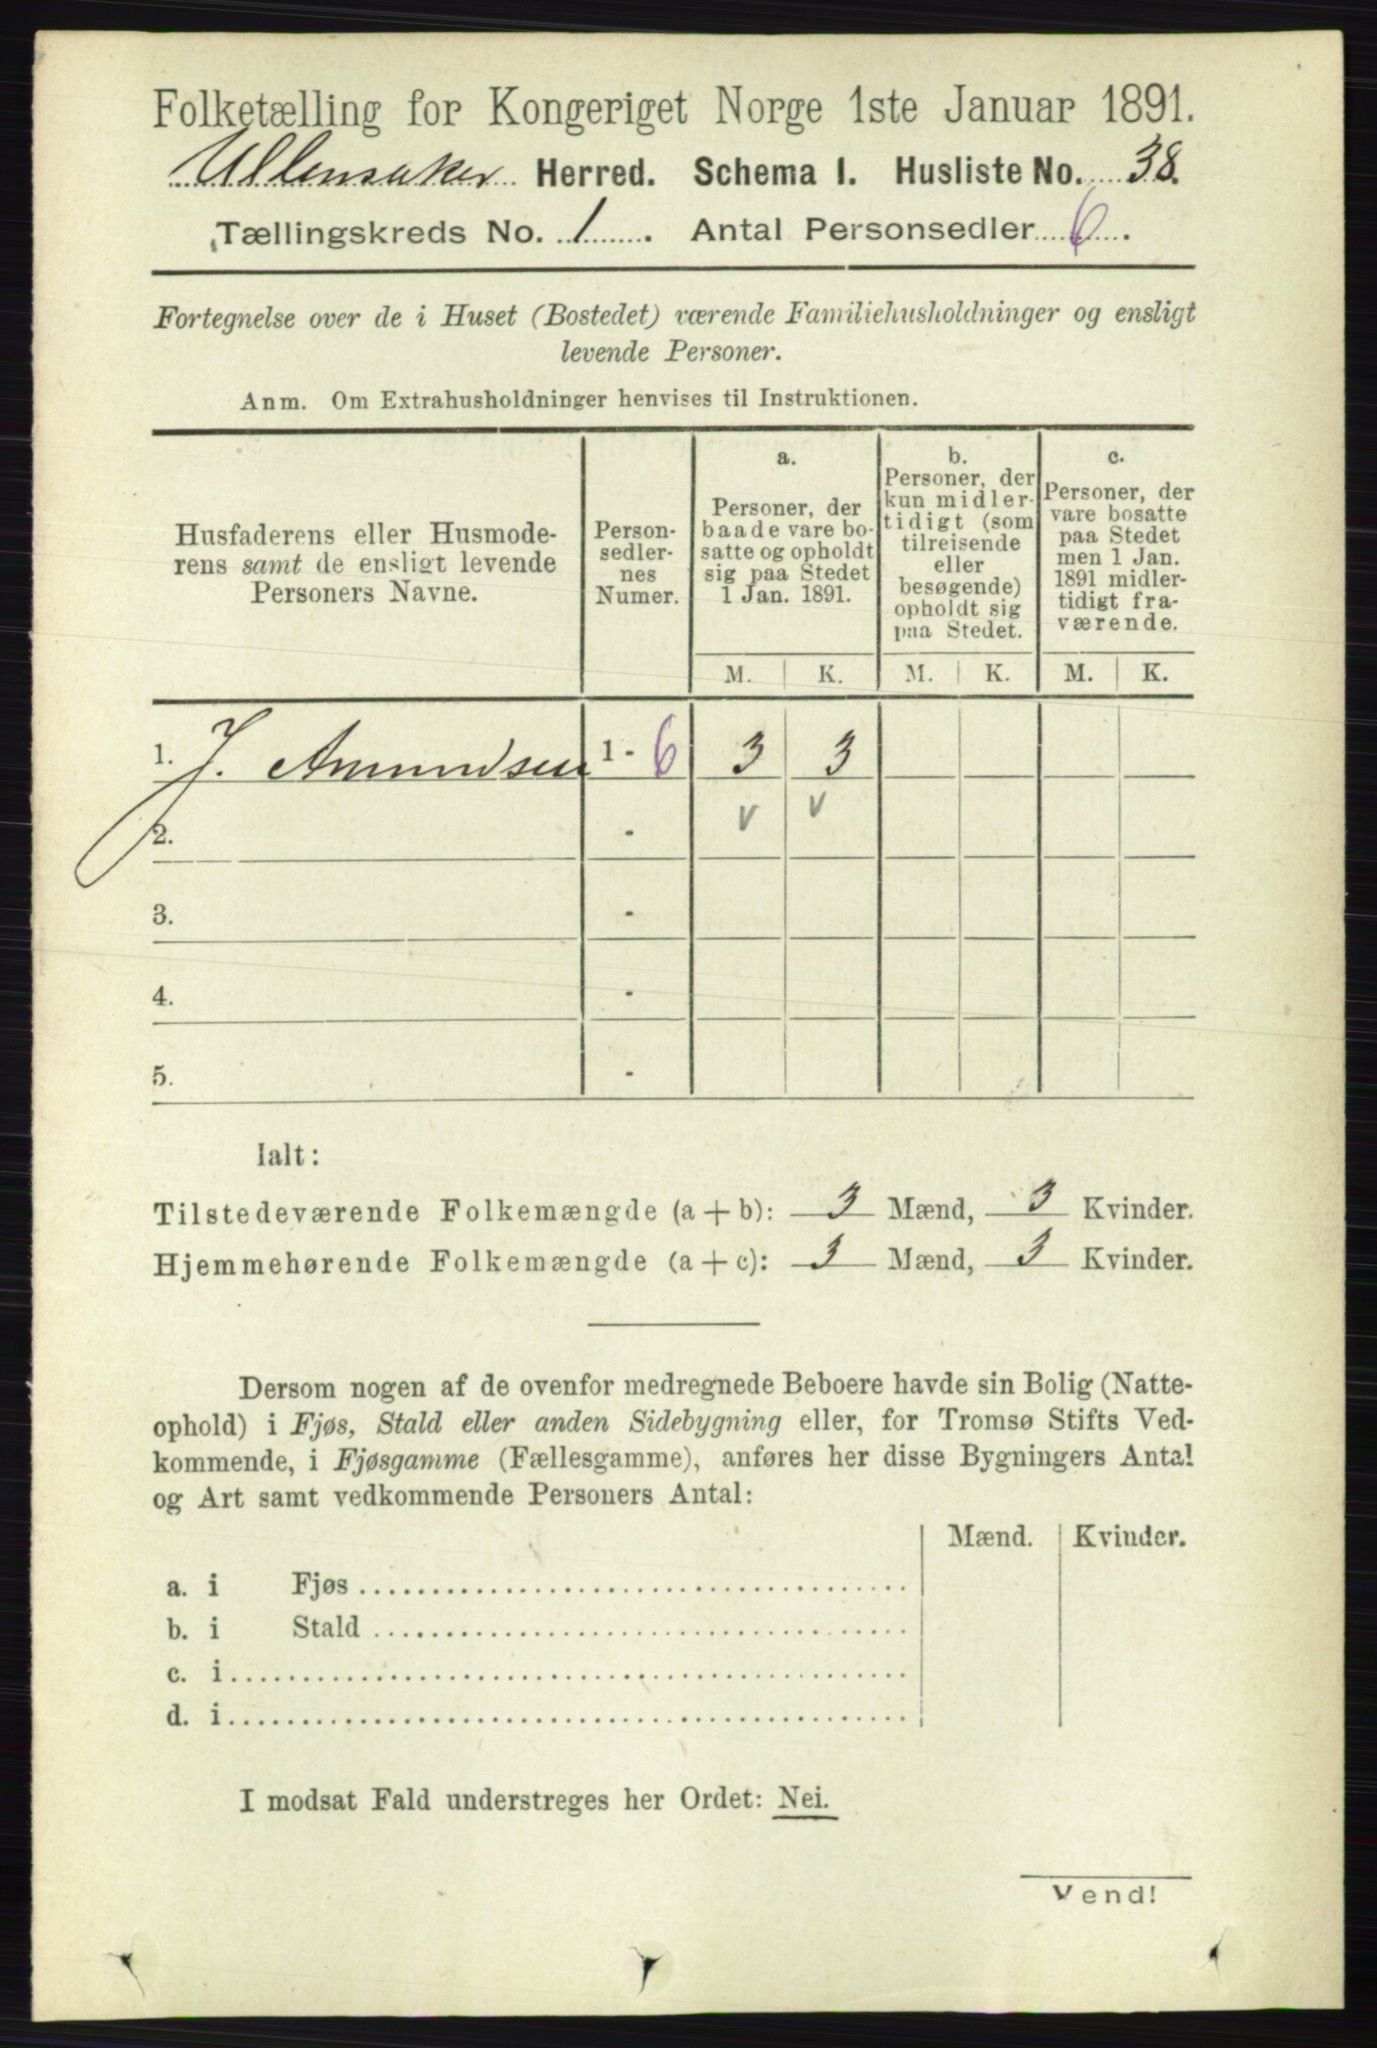 Folketælling for Kongeriget Norge 1ste Januar 1891.
Ullensaker Herred. Schema I. Husliste No. 38.
Tællingskreds No. 1. Antal Personsedler 6.
Fortegnelse over de i Huset (Bostedet) værende Familiehusholdninger og ensligt
levende Personer.
Anm. Om Extrahusholdninger henvises til Instruktionen.
Husfaderens eller Husmode-
rens samt de ensligt levende
Personers Navne.
Person-
sedler-
nes
Numer.
a.
Personer, der
baade vare bo-
satte og opholdt
sig paa Stedet
1 Jan. 1891.
b.
Personer, der
kun midler-
tidigt (som
tilreisende
eller
besøgende)
opholdt sig
paa Stedet.
c.
Personer, der
vare bosatte
paa Stedet
men 1 Jan.
1891 midler-
tidigt fra-
værende.
M. K. M. K. M. K.
1. J. Amundsen 1 - 6 3 3
2. - v v
3. -
4. -
5. -
Ialt:
Tilstedeværende Folkemængde (a + b): 3 Mænd, 3 Kvinder.
Hjemmehørende Folkemængde (a + c): 3 Mænd, 3 Kvinder.
Dersom nogen af de ovenfor medregnede Beboere havde sin Bolig (Natte-
ophold) i Fjøs, Stald eller anden Sidebygning eller, for Tromsø Stifts Ved-
kommende, i Fjøsgamme (Fællesgamme), anføres her disse Bygningers Antal
og Art samt vedkommende Personers Antal:
Mænd. Kvinder.
a. i Fjøs
b. i Stald
c. i
d. i
I modsat Fald understreges her Ordet: Nei.
Vend!